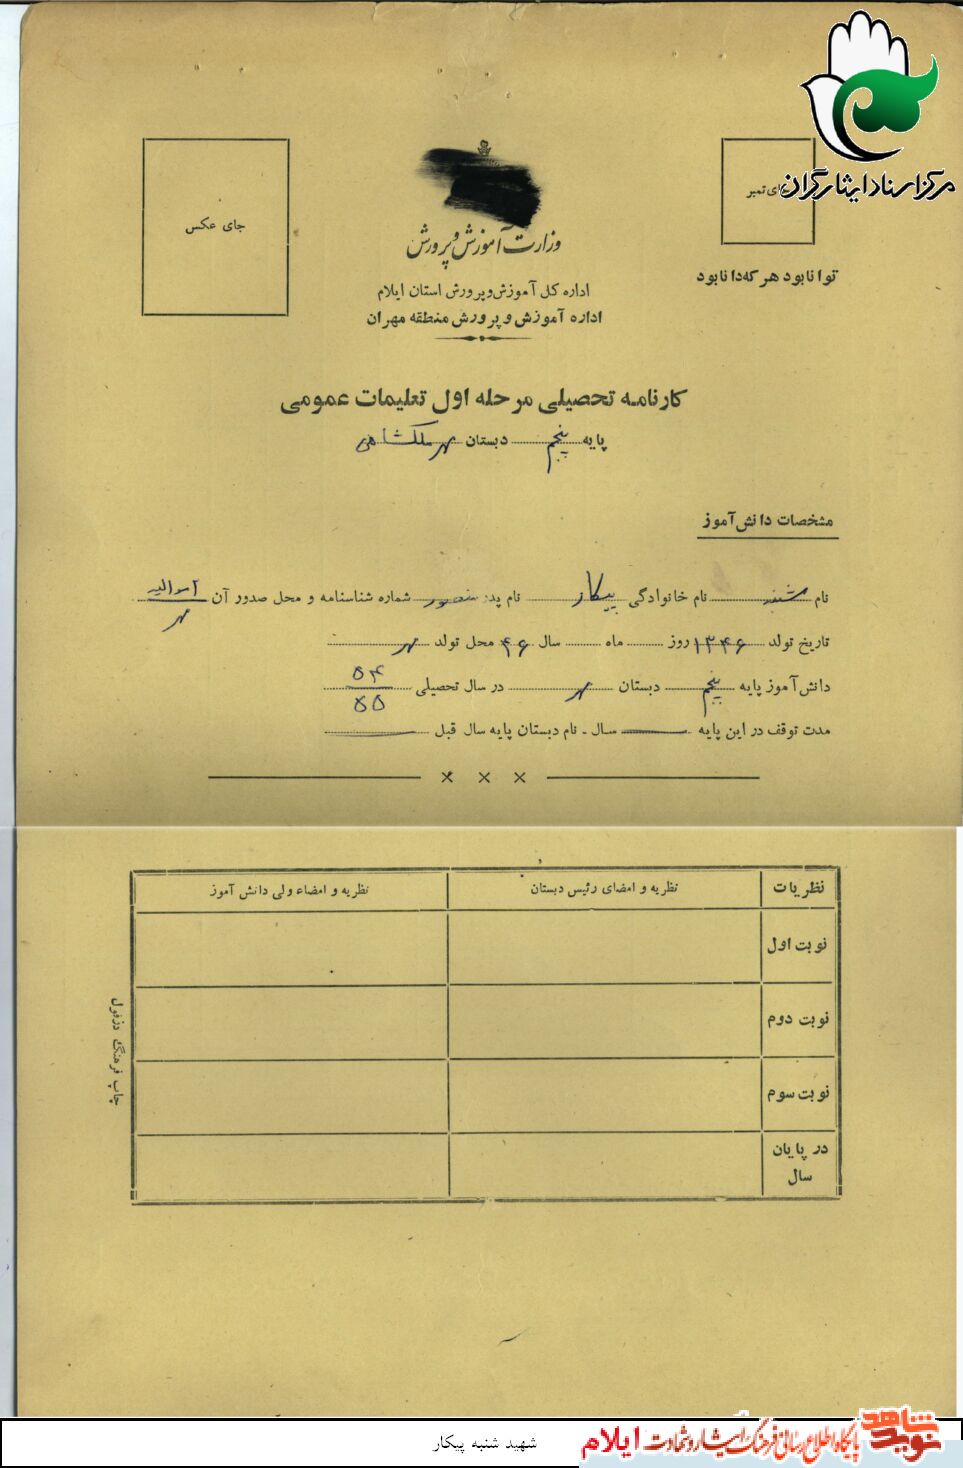 مرکز اسناد ایثارگران
جای تمبر
جای عکس
توانا بود هر که دانا بود
وزارت آموزش و پرورش
اداره کل آموزش و پرورش استان ایلام
اداره آموزش و پرورش منطقه مهران
کارنامه تحصیلی مرحله اول تعلیمات عمومی
پایه پنجم دبستان مهر ملکشاهی
مشخصات دانش آموز
نام شنبه نام خانوادگی پیکار نام پدر منصور شماره شناسنامه و محل صدور آن
تاریخ تولد ۱۳۴۶ روز ماه سال ۴۶ محل تولد
دانش آموز پایه پنجم دبستان مهر در سال تحصیلی ۵۴ ۵۵
مدت توقف در این پایه سال - نام دبستان پایه سال قبل
× × ×
نظریات نظریه و امضای رئیس دبستان نظریه و امضاء ولی دانش آموز
نوبت اول
نوبت دوم
نوبت سوم
در پایان
سال
چاپ فرهنگ دزفول
نوید شاهد پایگاه اطلاع رسانی فرهنگ ایثار و شهادت ایلام
شهید شنبه پیکار